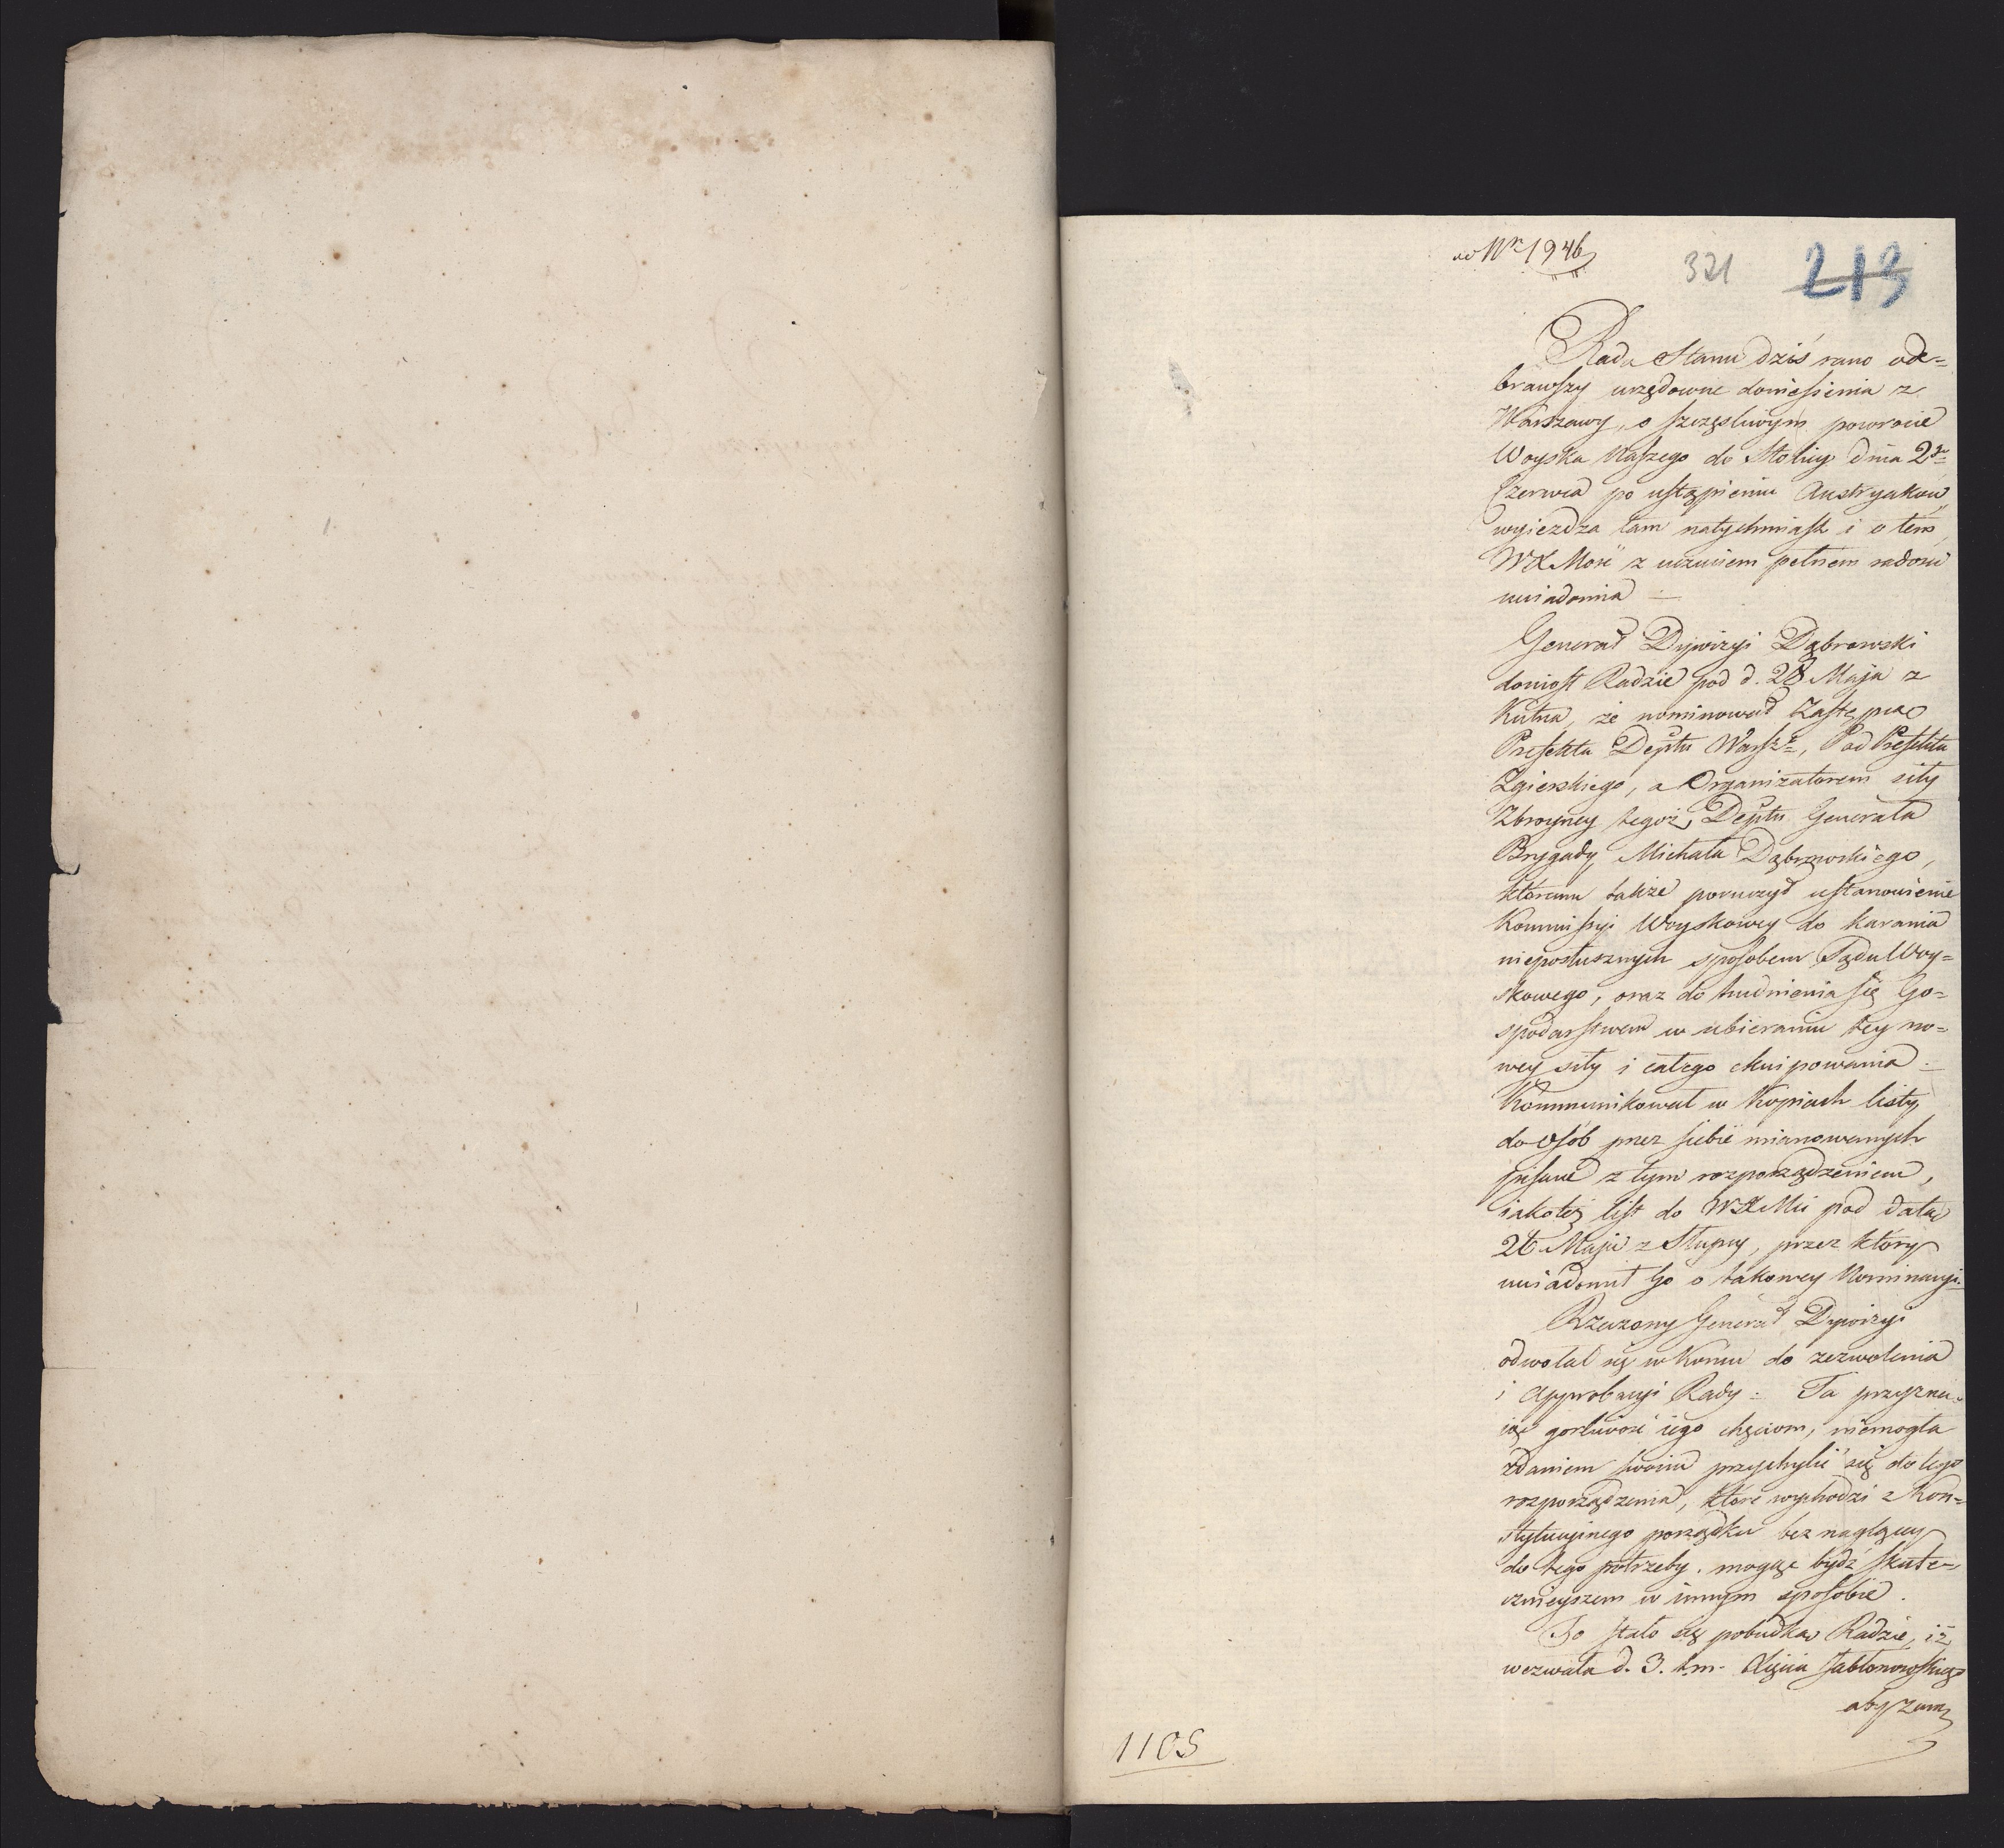 ad Nr 1946
321 213
Rada Stanu dziś rano ode=
brawszy urzędowne doniesienia z
Warszawy, o szczęsliwym powrocie
Woyska Naszego do Stolicy dnia 2go
Czerwca po ustąpieniu Austryakow
wyiezdza tam natychmiast i o tem
WXMość z uczuciem pełnem radości
uwiadomia —
Generał Dywizyi Dąbrowski
doniosł Radzie pod d. 28 Maja z
Kutna, że nominował Zastępcą
Prefekta Deptu Warszo, PodPrefekta
Zgierskiego, a Organizatorem siły
Zbroyney tegoż Deptu Generała
Brygady Michała Dąbrowskiego,
któremu także poruczył ustanowienie
Kommissyi Woyskowey do karania
nieposłusznych sposobem Sądu Woy=
skowego, oraz do trudnienia się Go=
spodarstwem w ubieraniu tey no=
wey siły i całego ekwipowania.
Kommunikował w Kopiach listy
do osób przez siebie mianowanych
pisane z tym rozporządzeniem,
iakoteż list do WXMci pod datą
26 Maja z Słupcy, przez który
uwiadomił Go o takowey Nominacyi.
Rzeczony Generał Dywizyi
odwołał się w końcu do zezwolenia
i Approbacyi Rady. Ta przyzna=
iąc gorliwość iego chęciom, niemogła
zdaniem swoim przychylić się do tego
rozporządzenia, które wychodzi z Kon=
stytucyinego porządku bez naglącey
do tego potrzeby. mogąc bydź skute=
cznieyszem w innym sposobie.
To stało się pobudką Radzie, iż
wezwała d. 3. t.m. Xięcia Jabłonowskiego
aby zam
1105